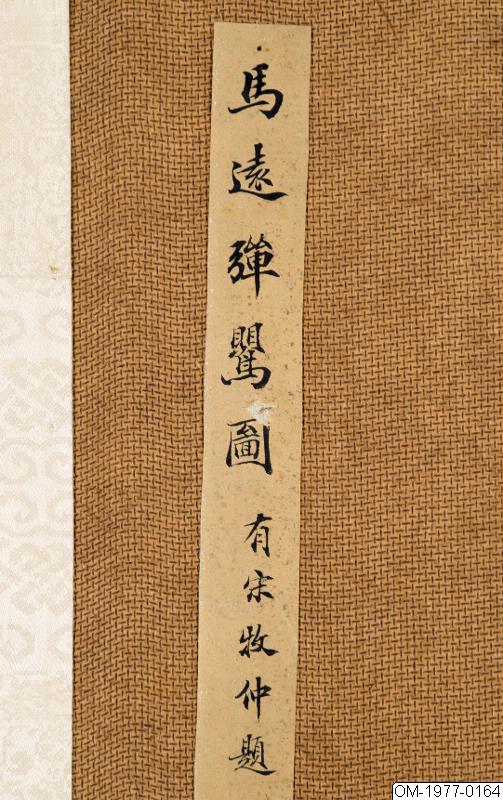 馬遠彈鸎圖 有宋牧仲題
OM-1977-0164